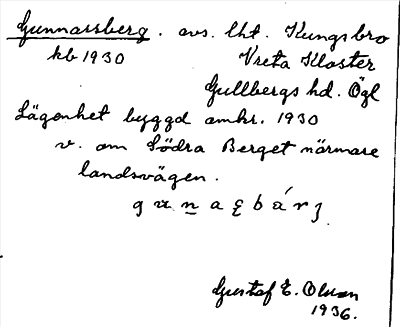 Gunnarssberg. avs. lht. Kungsbro
kb 1930 Vreta Kloster
Gullbergs hd. Ögl
Lägenhet byggd omkr. 1930
v. om Södra Berget närmare
landsvägen.
Gustaf E. Olson
1936.